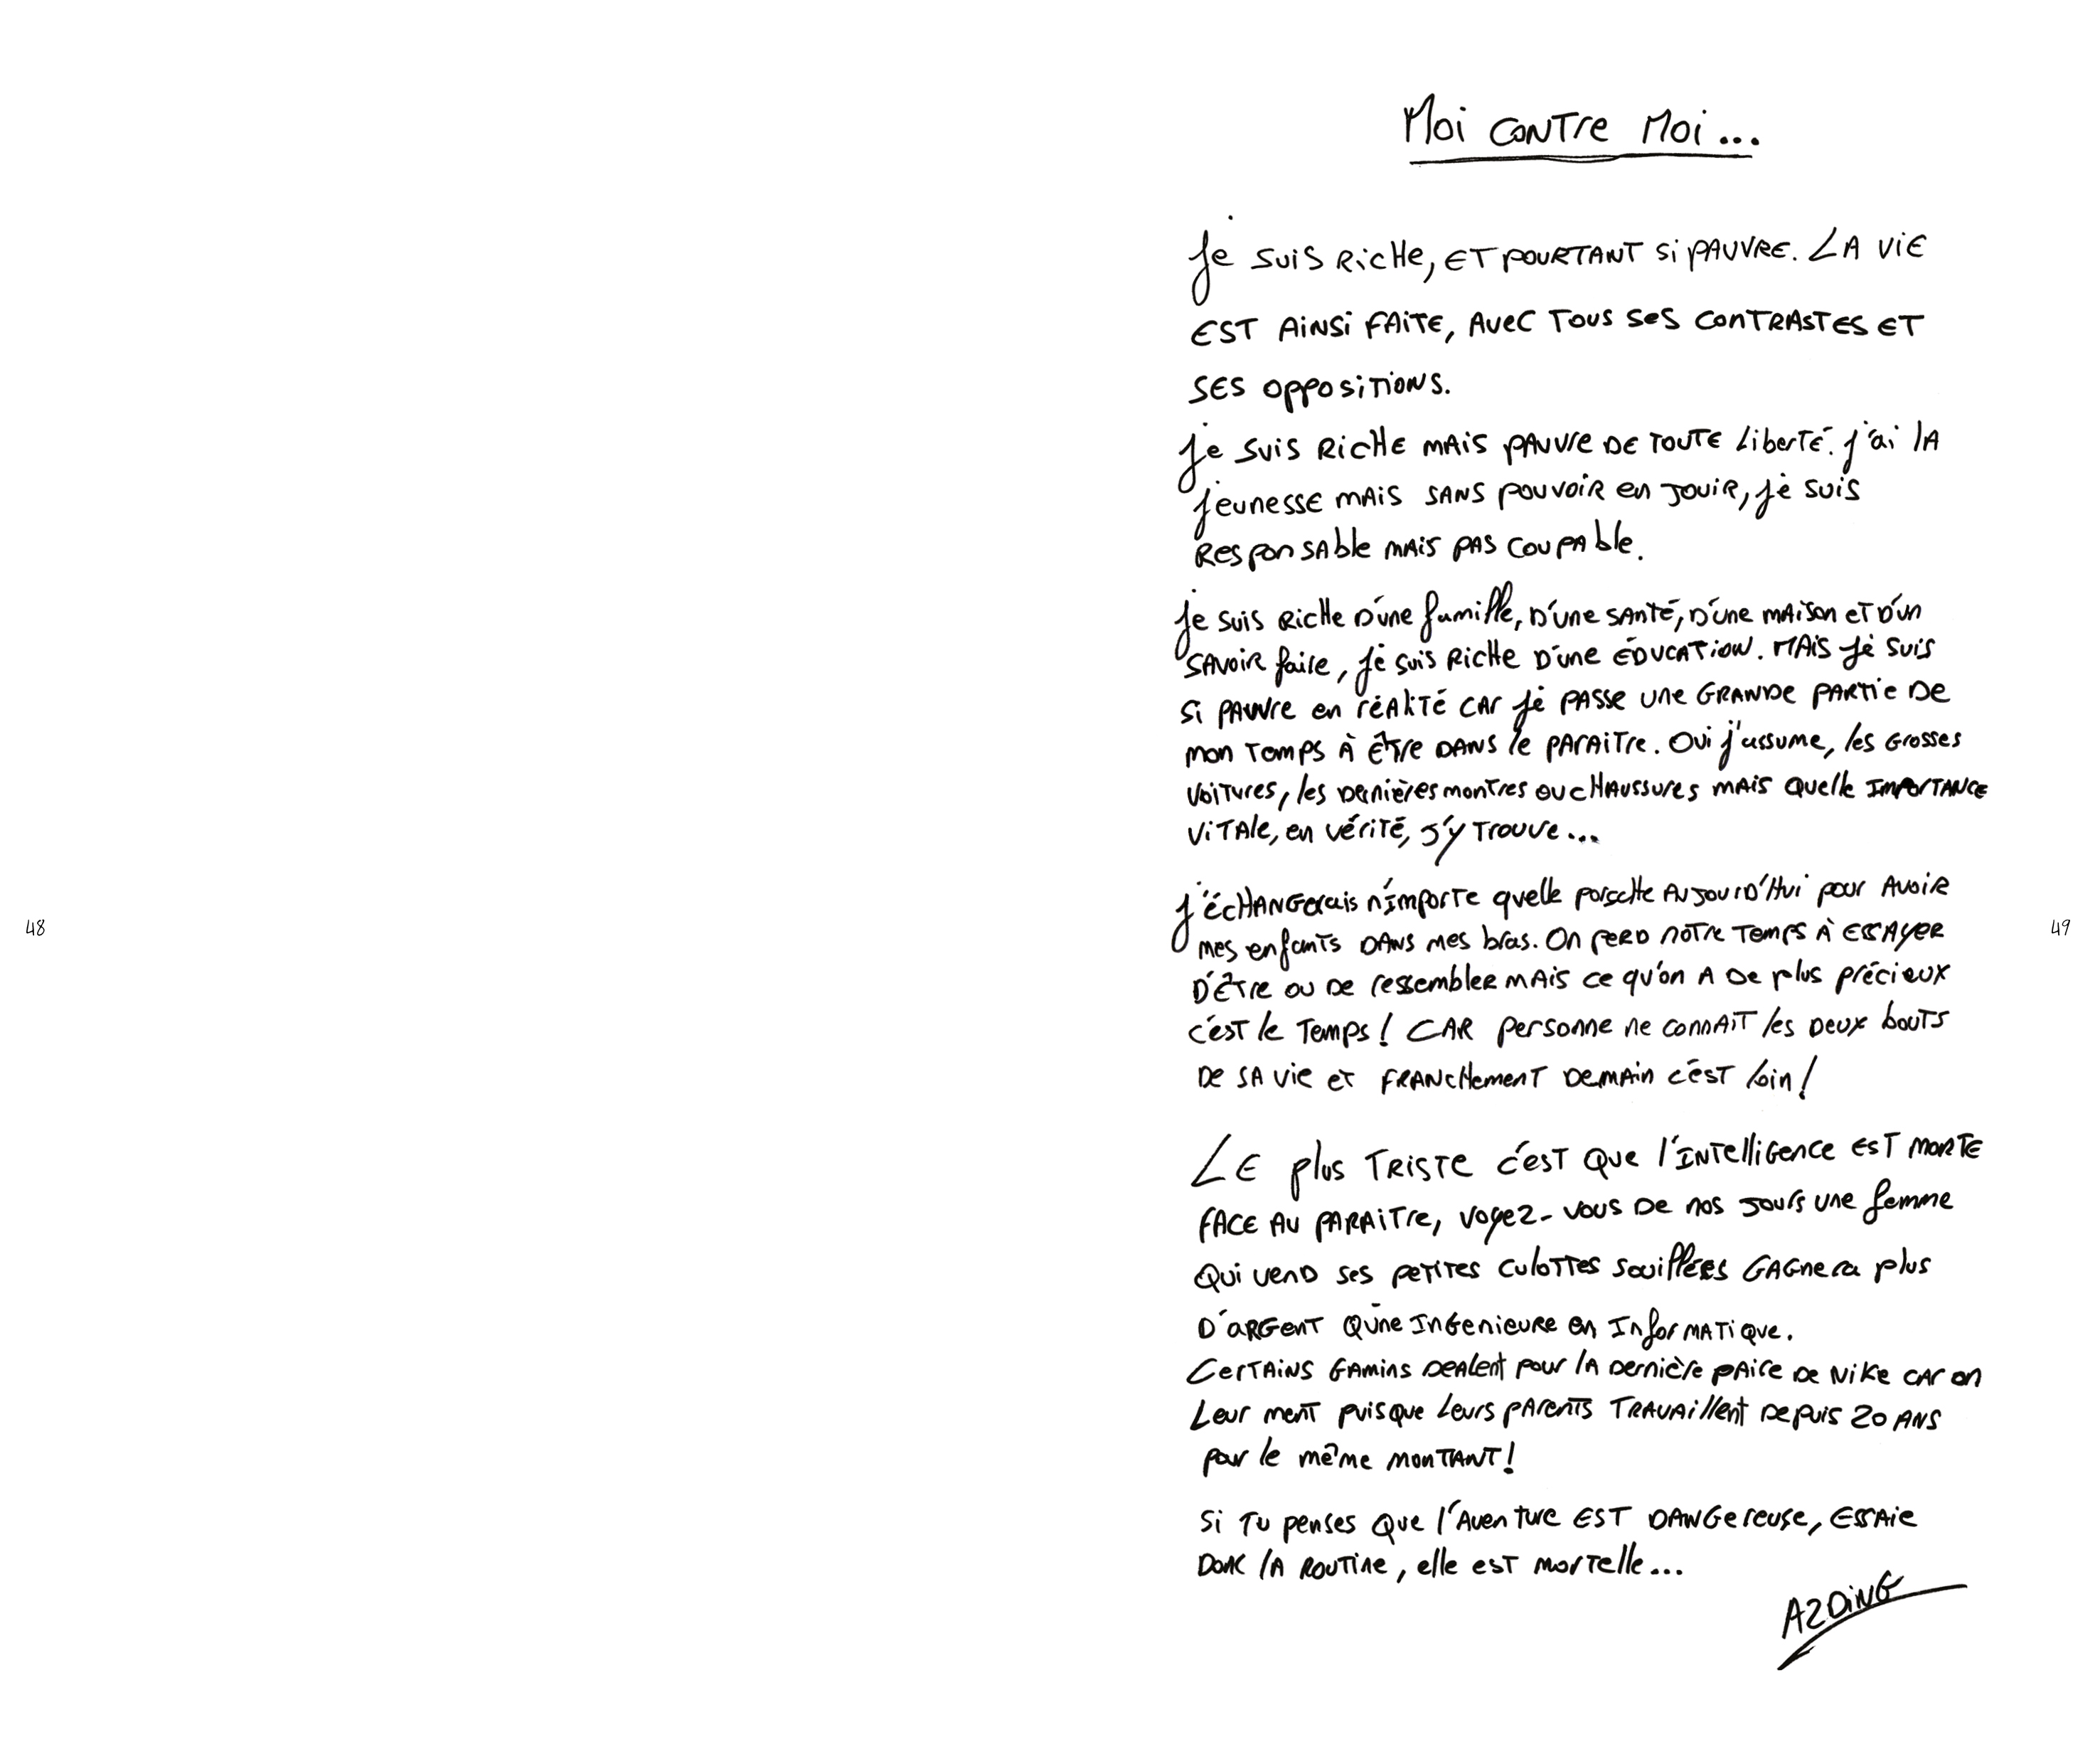 Moi contre Moi...
Je suis riche, et pourtant si pauvre. La vie
est ainsi faite, avec tous ses contrastes et
ses oppositions.
Je suis riche mais pauvre de toute liberté. j'ai la
jeunesse mais sans pouvoir en jouir, je suis
responsable mais pas coupable.
Je suis riche d'une famille, d'une santé, d'une maison et d'un
savoir faire, je suis riche d'une éducation. Mais je suis
si pauvre en réalité car je passe une grande partie de
mon temps à être dans le paraitre. Oui j'assume, les grosses
voitures, les dernières montres ou chaussures mais quelle importance
vitale, en vérité, s'y trouve...
48
J'échangerais n'importe quelle porsche aujourd'hui pour avoir
mes enfants dans mes bras. On perd notre temps à essayer
49
d'être ou de ressembler mais ce qu'on a de plus précieux
c'est le temps! Car personne ne connait les deux bouts
de sa vie et franchement demain c'est loin!
Le plus triste c'est que l'intelligence est morte
face au paraitre, voyez-vous de nos jours une femme
qui vend ses petites culottes souillées gagnera plus
d'argent qu'une ingenieure en informatique.
Certains gamins dealent pour la dernière paire de Nike car on
leur ment puisque leurs parents travaillent depuis 20 ans
pour le même montant!
Si tu penses que l'aventure est dangereuse, essaie
donc la routine, elle est mortelle...
AZDING